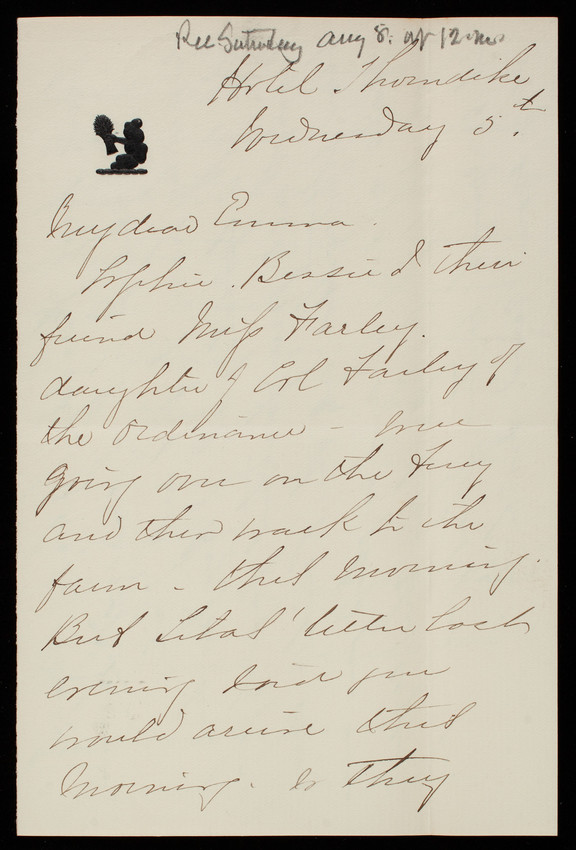 Rec Saturday Aug 8. at 12 m.
Hotel Thorndike
Wednesday 5th.
My dear Emma.
Sophie. Bessie & their
friend Miss Farley.
daughter of Col Farley of
the Ordinance - were
going over on the Ferry
and then walk to the
farm - this morning.
But Litas' letter last
evening said you
would arrive this
morning. so they